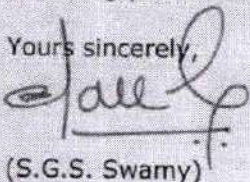 Yours sincerely,
(S.G.S. Swamy)